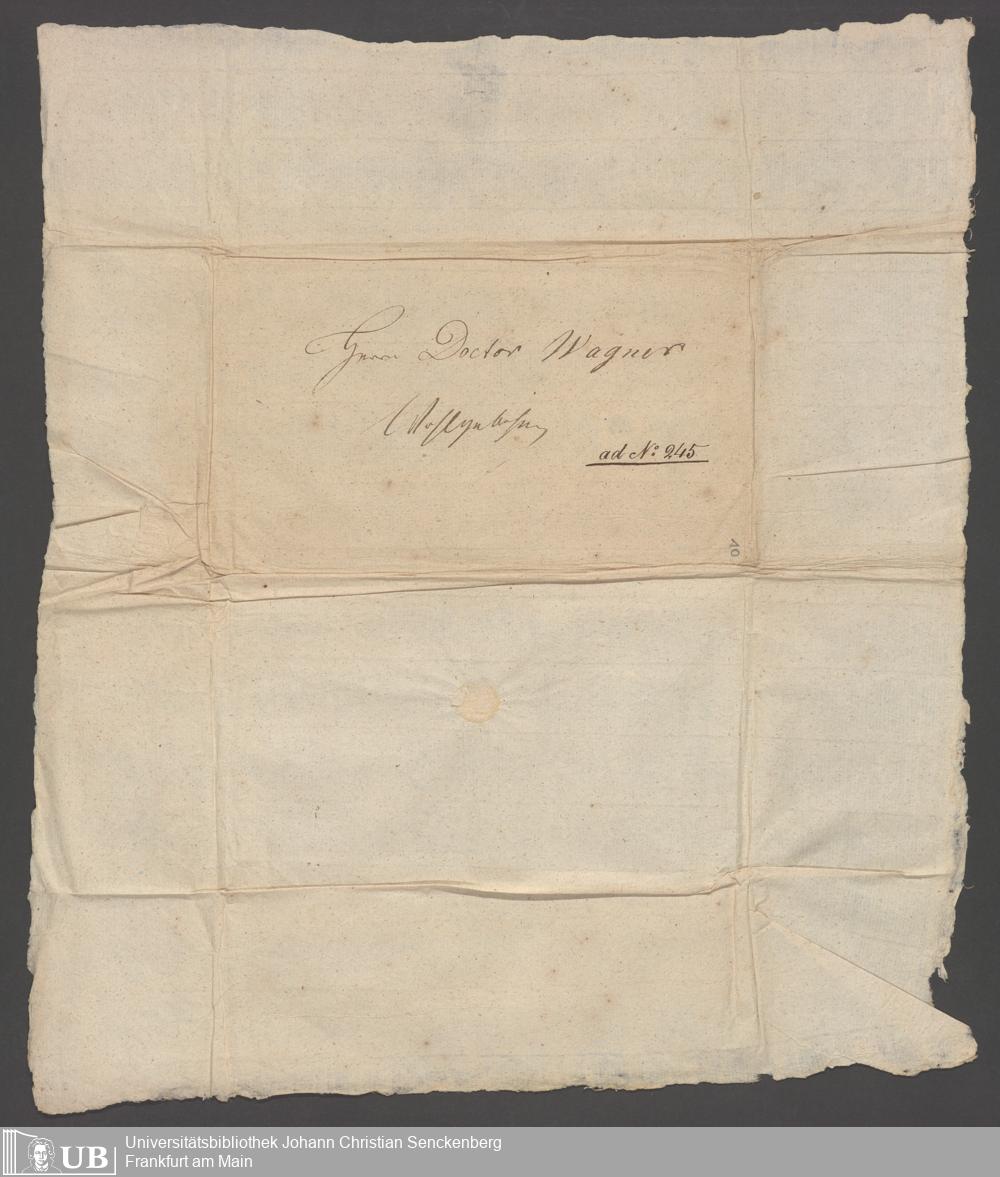 Herrn Doctor Wagner
Wohlgeboren
ad No. 245
10
UB
Universitätsbibliothek Johann Christian Senckenberg
Frankfurt am Main